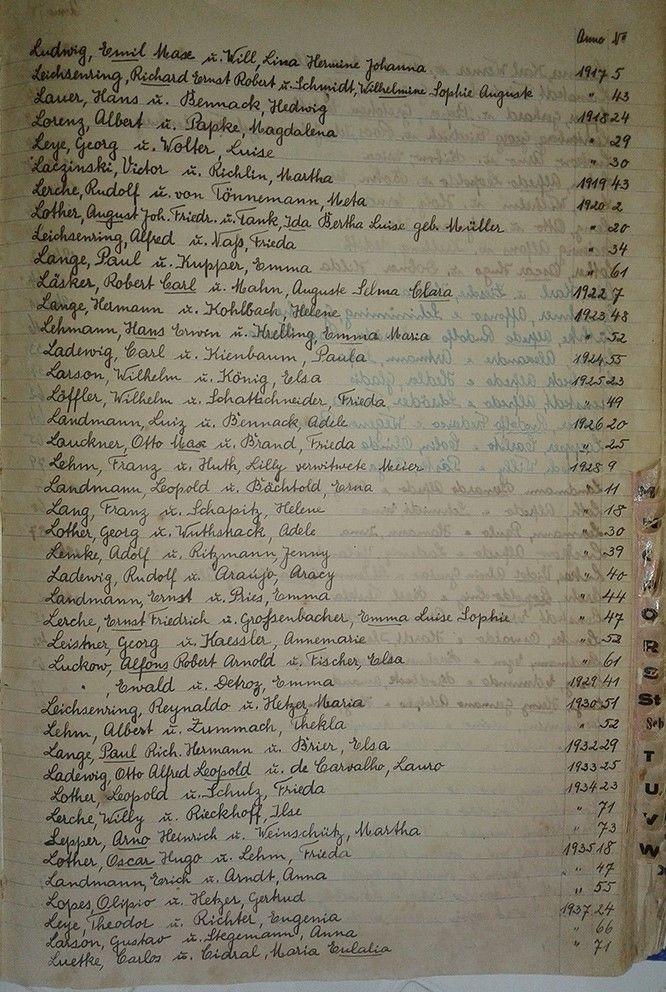 Anno №
Ludwig, Emil Max u. Will, Lina Hermine Johanna 1917 5
Leichsenring, Richard Ernst Robert u. Schmidt, Wilhelmine Sophie Auguste " 43
Lauer, Hans u. Bennack, Hedwig 1918 24
Lorenz, Albert u. Papke, Magdalena " 29
Leye, Georg u. Wolter, Luise " 30
Laczinski, Victor u. Richlin, Martha 1919 43
Lerche, Rudolf u. von Tönnemann, Meta 1920 2
Lother, August Joh. Friedr. u. Tank, Ida Bertha Luise geb. Müller " 20
Leichsenring, Alfred u. Naß, Frieda " 34
Lange, Paul u. Kupper, Emma " 61
Läsker, Robert Carl u. Mahn, Auguste Selma Clara 1922 7
Lange, Hermann u. Kohlbach, Helene 1923 48
Lehmann, Hans Erwin u. Hrelling, Emma Maria " 52
Ladewig, Carl u. Kienbaum, Paula 1924 55
Larson, Wilhelm u. König, Elsa 1925 23
Löffler, Wilhelm u. Schattschneider, Frieda " 49
Landmann, Luiz u. Bennack, Adele 1926 20
Lauckner, Otto Max u. Brand, Frieda " 25
Lehm, Franz u. Huth, Lilly verwitwete Meier 1928 9
Landmann, Leopold u. Bächtold, Erna " 11
Lang, Franz u. Schapitz, Helene " 18
Lother, Georg u. Wuthstrack, Adele " 30
Lemke, Adolf u. Ritzmann, Jenny " 39
Ladewig, Rudolf u. Araújo, Aracy " 40
Landmann, Ernst u. Pries, Emma " 44
Lerche, Ernst Friedrich u. Großenbacher, Emma Luise Sophie " 47
Leistner, Georg u. Haessler, Annemarie " 52
Luckow, Alfons Robert Arnold u. Fischer, Elsa " 61
" , Ewald u. Detroz, Emma 1929 41
Leichsenring, Reynaldo u. Hetzer, Maria 1930 51
Lehm, Albert u. Zummach, Thekla " 52
Lange, Paul Rich. Hermann u. Brier, Elsa 1932 29
Ladewig, Otto Alfred Leopold u. de Carvalho, Lauro 1933 25
Lother, Leopold u. Schulz, Frieda 1934 23
Lerche, Willy u. Rieckhoff, Ilse " 71
Lepper, Arno Heinrich u. Weinschütz, Martha " 73
Lother, Oscar Hugo u. Lehm, Frieda 1935 18
Landmann, Erich u. Arndt, Anna " 47
Lopes, Olipio u. Hetzer, Gertrud " 55
Leye, Theodor u. Richter, Eugenia 1937 24
Larson, Gustav u. Stegemann, Anna " 66
Luetke, Carlos u. Cidral, Maria Eulalia " 71
O
R
St
Sch
T
U
V
W